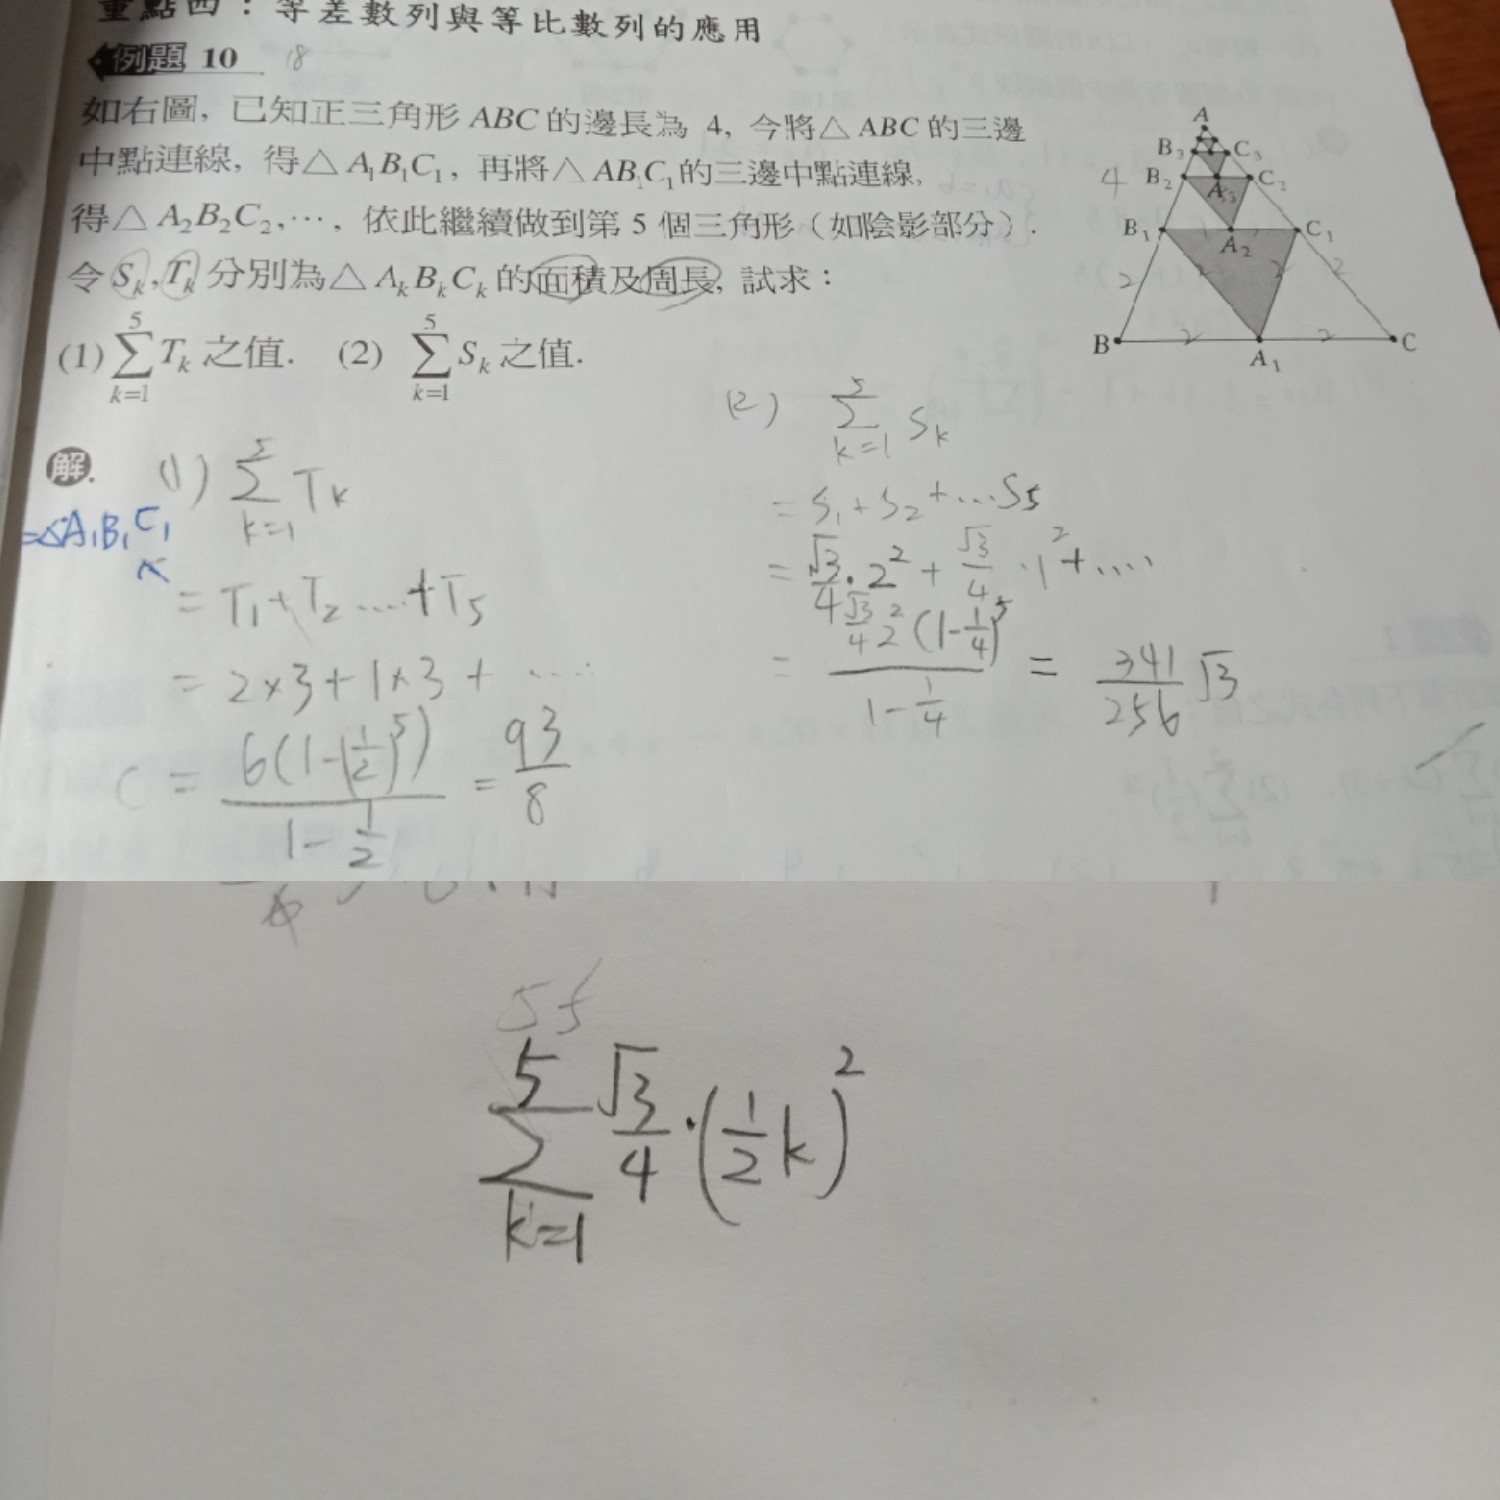 重點四：等差數列與等比數列的應用
例題 10 18
如右圖, 已知正三角形 ABC 的邊長為 4, 今將△ ABC 的三邊
中點連線, 得△ A₁B₁C₁, 再將△ AB₁C₁的三邊中點連線,
得△ A₂B₂C₂, ⋯, 依此繼續做到第 5 個三角形（如陰影部分）.
令 Sₖ, Tₖ 分別為△ AₖBₖCₖ 的面積及周長, 試求：
(1) ∑_{k=1}^{5} Tₖ 之值. (2) ∑_{k=1}^{5} Sₖ 之值.
A
B₃ C₃
4 B₂ A₃ C₂
B₁ A₂ C₁
2 2 2
B 2 A₁ 2 C
解.
(1) ∑_{k=1}^{5} Tₖ
=△A₁B₁C₁
= T₁+T₂ ....+T₅
= 2×3+1×3+ ....
= \frac{6(1-(\frac{1}{2})^5)}{1-\frac{1}{2}} = \frac{93}{8}
(2) ∑_{k=1}^{5} Sₖ
= S₁+S₂+...S₅
= \frac{√3}{4}·2²+\frac{√3}{4}·1²+....
= \frac{\frac{√3}{4}2²(1-\frac{1}{4})^5}{1-\frac{1}{4}} = \frac{341}{256}√3
∑_{k=1}^{5} \frac{√3}{4}·(\frac{1}{2}k)²